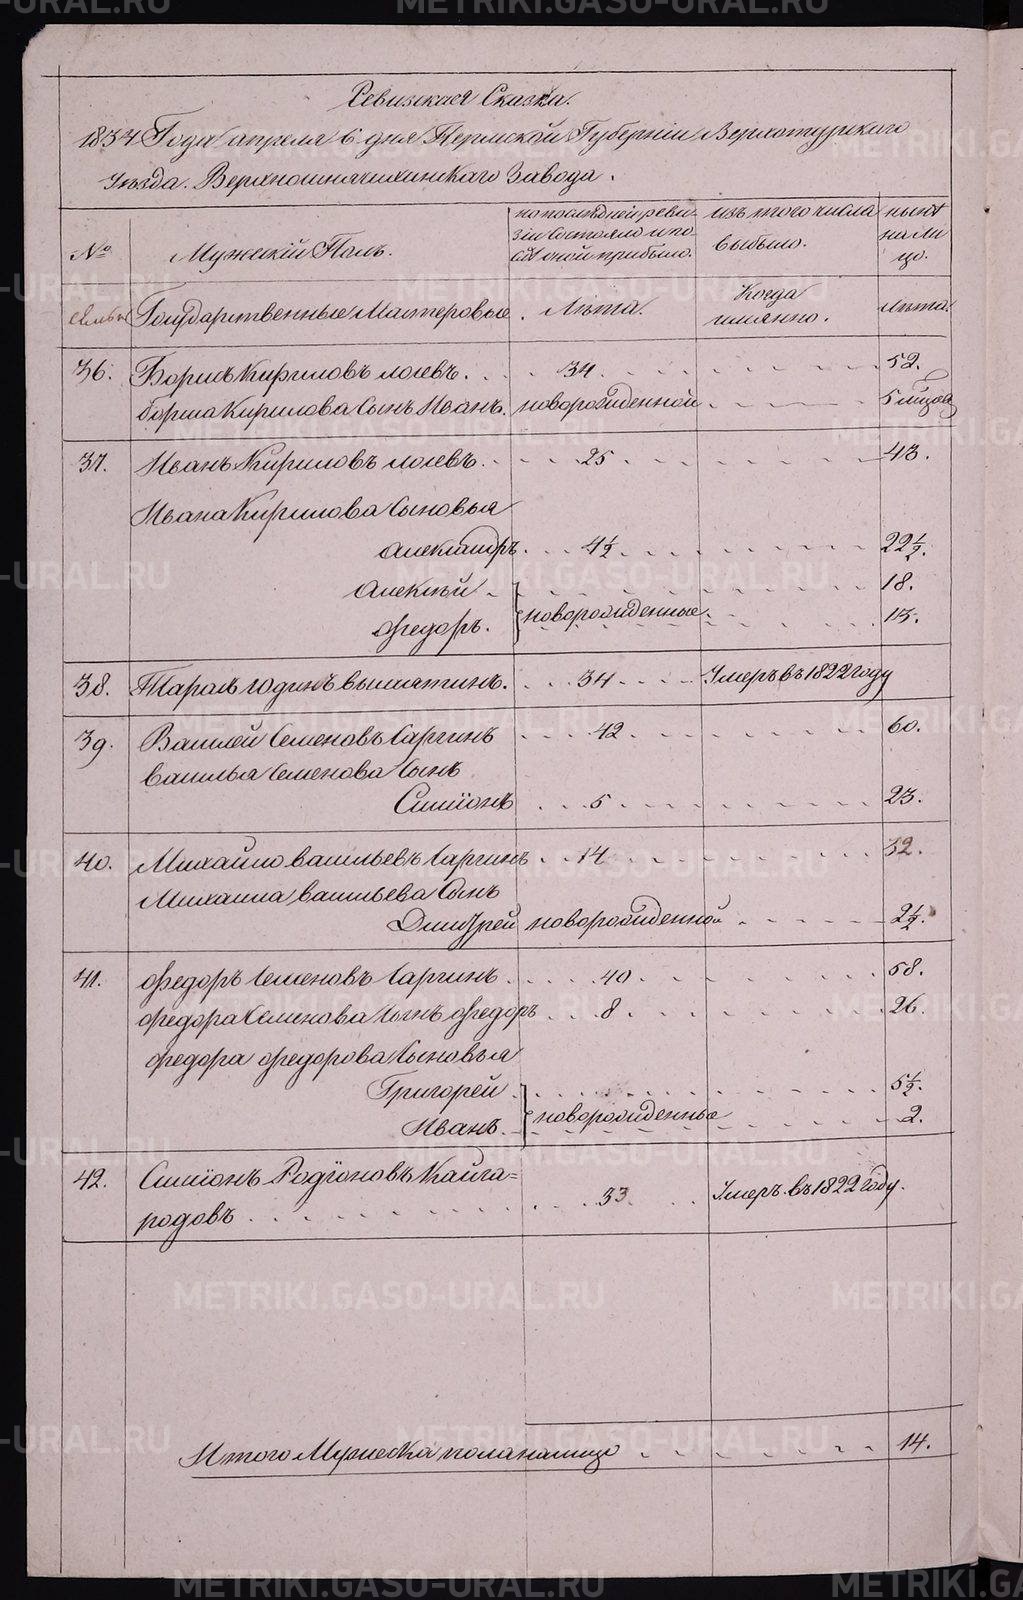 Ревизская Сказка.
1834 Года апреля 6 дня Пермской Губернiи Верхотурскаго
Уѣзда. Верхношнячихинскаго Завода.
№
семьи
Мужескiй Полъ.
по последней реви-
зiи состояло и по-
слѣ оной прибыло.
изъ того числа
выбыло.
нынѣ
на ли
цо.
Государственные Мастеровые.
Лѣта.
Когда
имянно.
лѣта.
36. Борисъ Кириловъ 34 52.
бориса Кирилова Сынъ Иванъ. новорожденной 5 мѣсяцов
37. Иванъ Кириловъ 25 43.
Ивана Кирилова Сыновья
Александръ 4½ 22½.
Алексѣй 18.
новорожденные.
Федоръ. 13.
38. Тарасъ Юдинъ 34 Умеръ въ 1822 году
39. Василей Семеновъ Саргинъ 42 60.
василья Семенова Сынъ
Симiонъ 5 23.
40. Михайло васильевъ Саргинъ 14 32.
Михаила васильева Сынъ
Димитрей новорожденной 2½.
41. Федоръ Семеновъ Саргинъ 40 58.
федора Семенова Сынъ Федоръ 8 26.
федора федорова Сыновья
Григорей 5½.
новорожденные
Иванъ. 2.
42. Симiонъ Родiоновъ Кайга=
родовъ 33 Умеръ въ 1822 году.
Итого Мужеска пола налицо 14.
METRIKI.GASO-URAL.RU